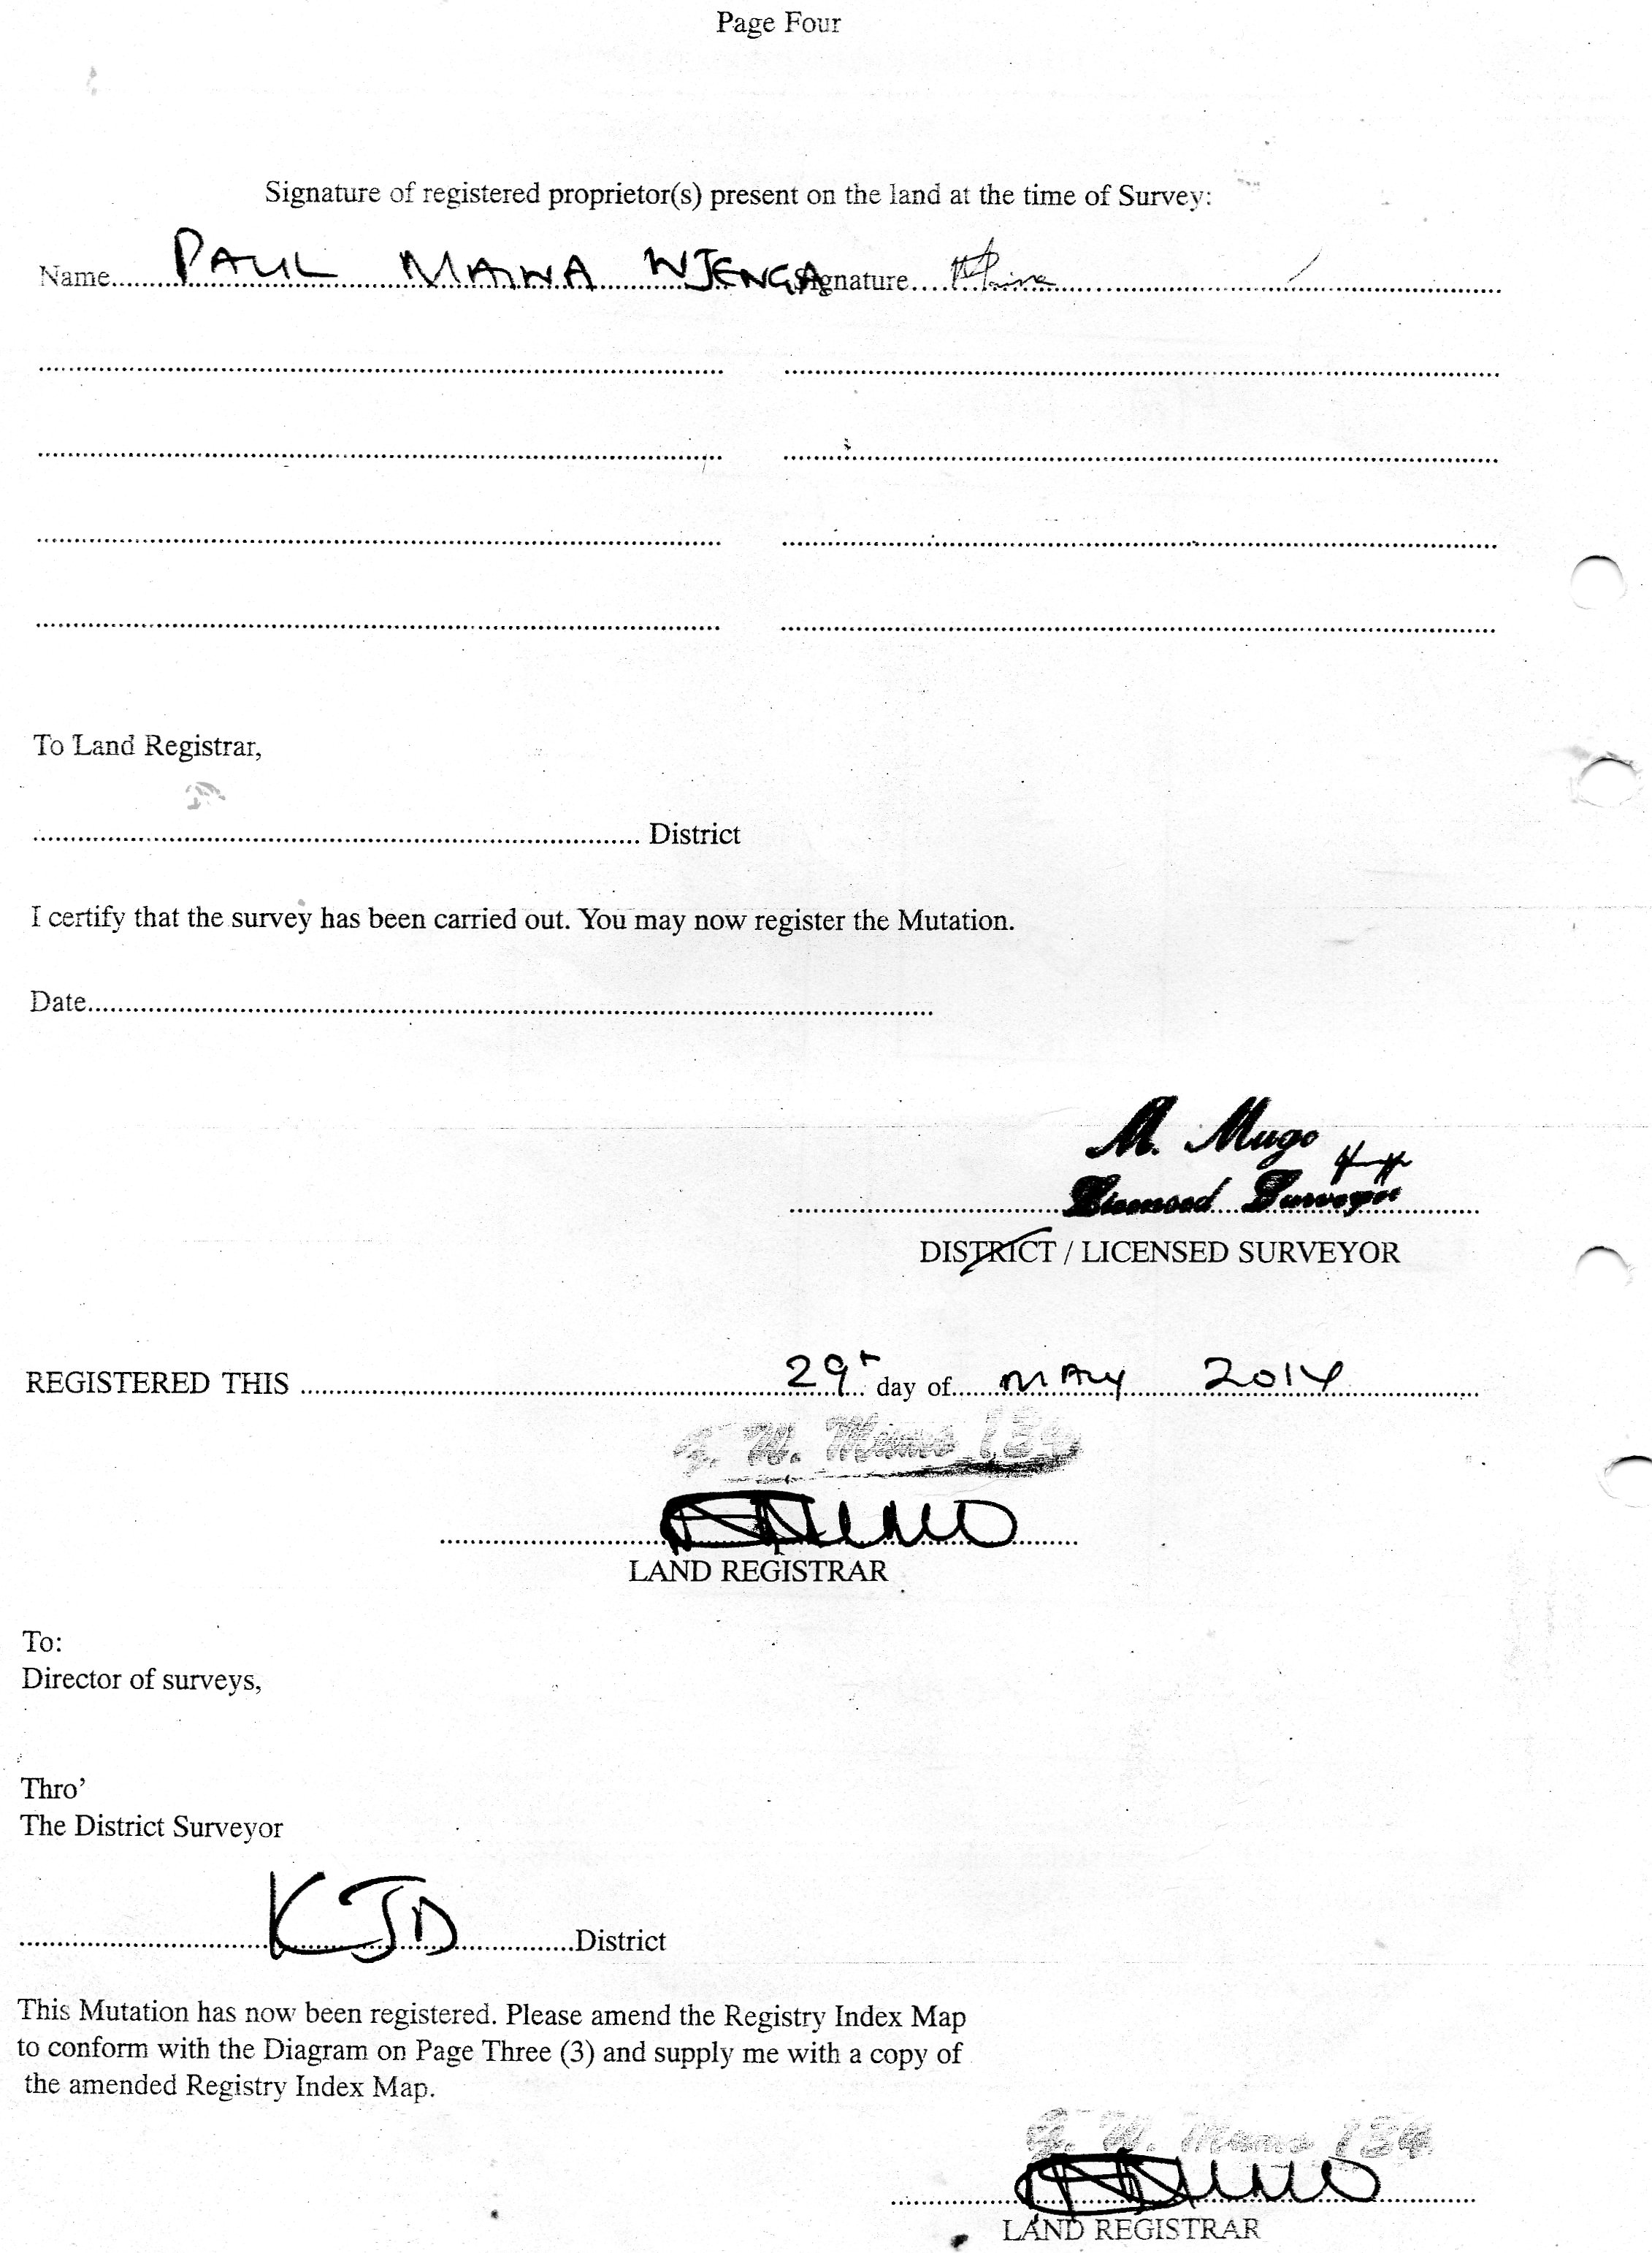 Page Four
Signature of registered proprietor(s) present on the land at the time of Survey:
Name.....PAUL MAINA NJENGA Signature....
To Land Registrar,
..... District
I certify that the survey has been carried out. You may now register the Mutation.
Date.....
M. Mugo
Licensed Surveyor
DISTRICT / LICENSED SURVEYOR
REGISTERED THIS ..... 29th day of..... MAY 2014
LAND REGISTRAR
To:
Director of surveys,
Thro'
The District Surveyor
..... KJD .....District
This Mutation has now been registered. Please amend the Registry Index Map
to conform with the Diagram on Page Three (3) and supply me with a copy of
the amended Registry Index Map.
LAND REGISTRAR